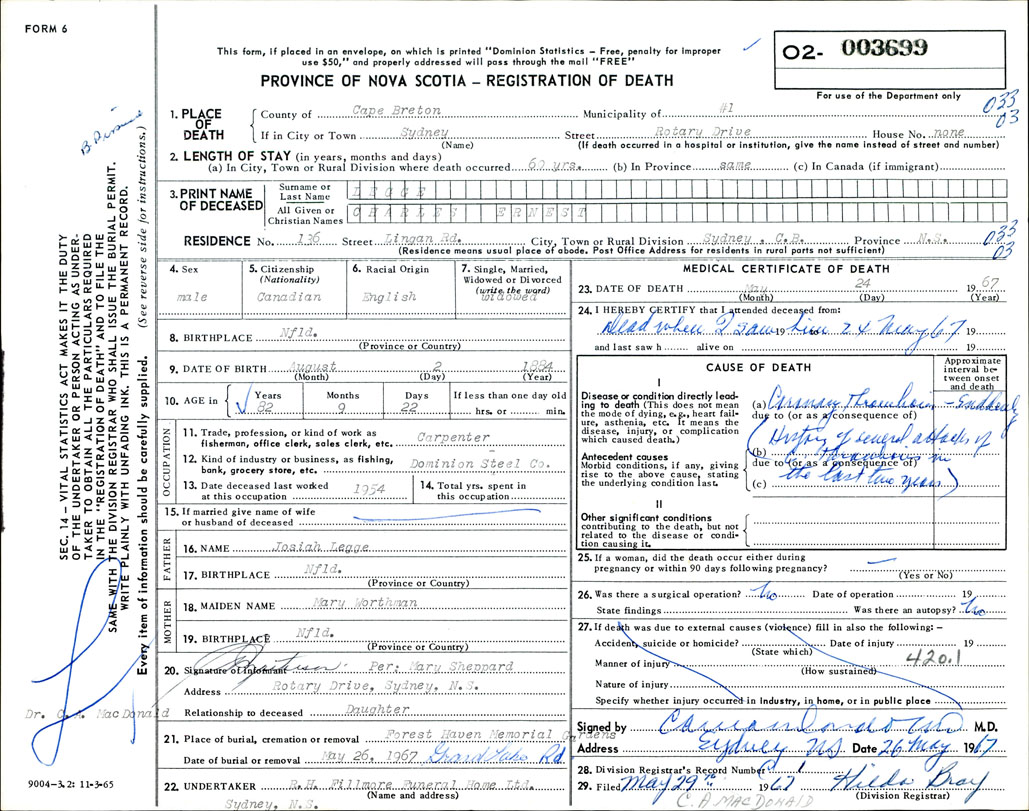 FORM 6
This form, if placed in an envelope, on which is printed "Dominion Statistics – Free, penalty for improper
use $50," and properly addressed will pass through the mail "FREE"
O2- 003699
For use of the Department only
PROVINCE OF NOVA SCOTIA – REGISTRATION OF DEATH
033
03
1. PLACE OF DEATH
County of Cape Breton Municipality of #1
If in City or Town Sydney Street Rotary Drive House No. none
(Name) (If death occurred in a hospital or institution, give the name instead of street and number)
2. LENGTH OF STAY (in years, months and days)
(a) In City, Town or Rural Division where death occurred 60 yrs. (b) In Province same (c) In Canada (if immigrant)
3. PRINT NAME OF DECEASED
Surname or Last Name LEGGE
All Given or Christian Names CHARLES ERNEST
RESIDENCE No. 136 Street Lingan Rd. City, Town or Rural Division Sydney, C.B. Province N.S.
(Residence means usual place of abode. Post Office Address for residents in rural parts not sufficient)
033
03
4. Sex
male
5. Citizenship
(Nationality)
Canadian
6. Racial Origin
English
7. Single, Married,
Widowed or Divorced
(write the word)
widowed
8. BIRTHPLACE Nfld.
(Province or Country)
9. DATE OF BIRTH August 2 1884
(Month) (Day) (Year)
10. AGE in Years Months Days If less than one day old
82 9 22 hrs. or min.
OCCUPATION
11. Trade, profession, or kind of work as
fisherman, office clerk, sales clerk, etc. Carpenter
12. Kind of industry or business, as fishing,
bank, grocery store, etc. Dominion Steel Co.
13. Date deceased last worked
at this occupation 1954
14. Total yrs. spent in
this occupation
15. If married give name of wife
or husband of deceased
FATHER
16. NAME Josiah Legge
17. BIRTHPLACE Nfld.
(Province or Country)
MOTHER
18. MAIDEN NAME Mary Worthman
19. BIRTHPLACE Nfld.
(Province or Country)
20. Signature of Informant Per: Mary Sheppard
Address Rotary Drive, Sydney, N.S.
Relationship to deceased Daughter
21. Place of burial, cremation or removal Forest Haven Memorial Gardens
Date of burial or removal May 26, 1967 Grand Lake Rd
22. UNDERTAKER R.H. Fillmore Funeral Home Ltd.
(Name and address)
Sydney, N.S.
MEDICAL CERTIFICATE OF DEATH
23. DATE OF DEATH May 24 1967
(Month) (Day) (Year)
24. I HEREBY CERTIFY that I attended deceased from:
Dead when I saw him 24 May 67 19
and last saw h alive on 19
CAUSE OF DEATH
Approximate interval between onset and death
I
Disease or condition directly leading to death (This does not mean
the mode of dying, e.g., heart failure, asthenia, etc. It means the
disease, injury, or complication
which caused death.)
(a) Coronary Thrombosis - Suddenly
due to (or as a consequence of)
Antecedent causes
Morbid conditions, if any, giving
rise to the above cause, stating
the underlying condition last.
(b) (History of several attacks of
C. Thrombosis in
due to (or as a consequence of)
(c) the last two years)
II
Other significant conditions
contributing to the death, but not
related to the disease or condition causing it.
25. If a woman, did the death occur either during
pregnancy or within 90 days following pregnancy?
(Yes or No)
26. Was there a surgical operation? No Date of operation 19
State findings Was there an autopsy? No
27. If death was due to external causes (violence) fill in also the following: –
Accident, suicide or homicide? Date of injury 19
(State which)
420.1
Manner of injury
(How sustained)
Nature of injury
Specify whether injury occurred in Industry, in home, or in public place
Signed by M.D.
Address Sydney NS Date 26 May 1967
28. Division Registrar's Record Number
29. Filed May 29th 1967 Hilda Bray
(Division Registrar)
C. A MACDONALD
SEC. 14 – VITAL STATISTICS ACT MAKES IT THE DUTY
OF THE UNDERTAKER OR PERSON ACTING AS UNDERTAKER TO OBTAIN ALL THE PARTICULARS REQUIRED
IN THE "REGISTRATION OF DEATH" AND TO FILE THE
SAME WITH THE DIVISION REGISTRAR WHO SHALL ISSUE THE BURIAL PERMIT.
WRITE PLAINLY WITH UNFADING INK. THIS IS A PERMANENT RECORD.
Every item of information should be carefully supplied. (See reverse side for instructions.)
Dr. C.A. MacDonald
9004-3.2: 11-3-65